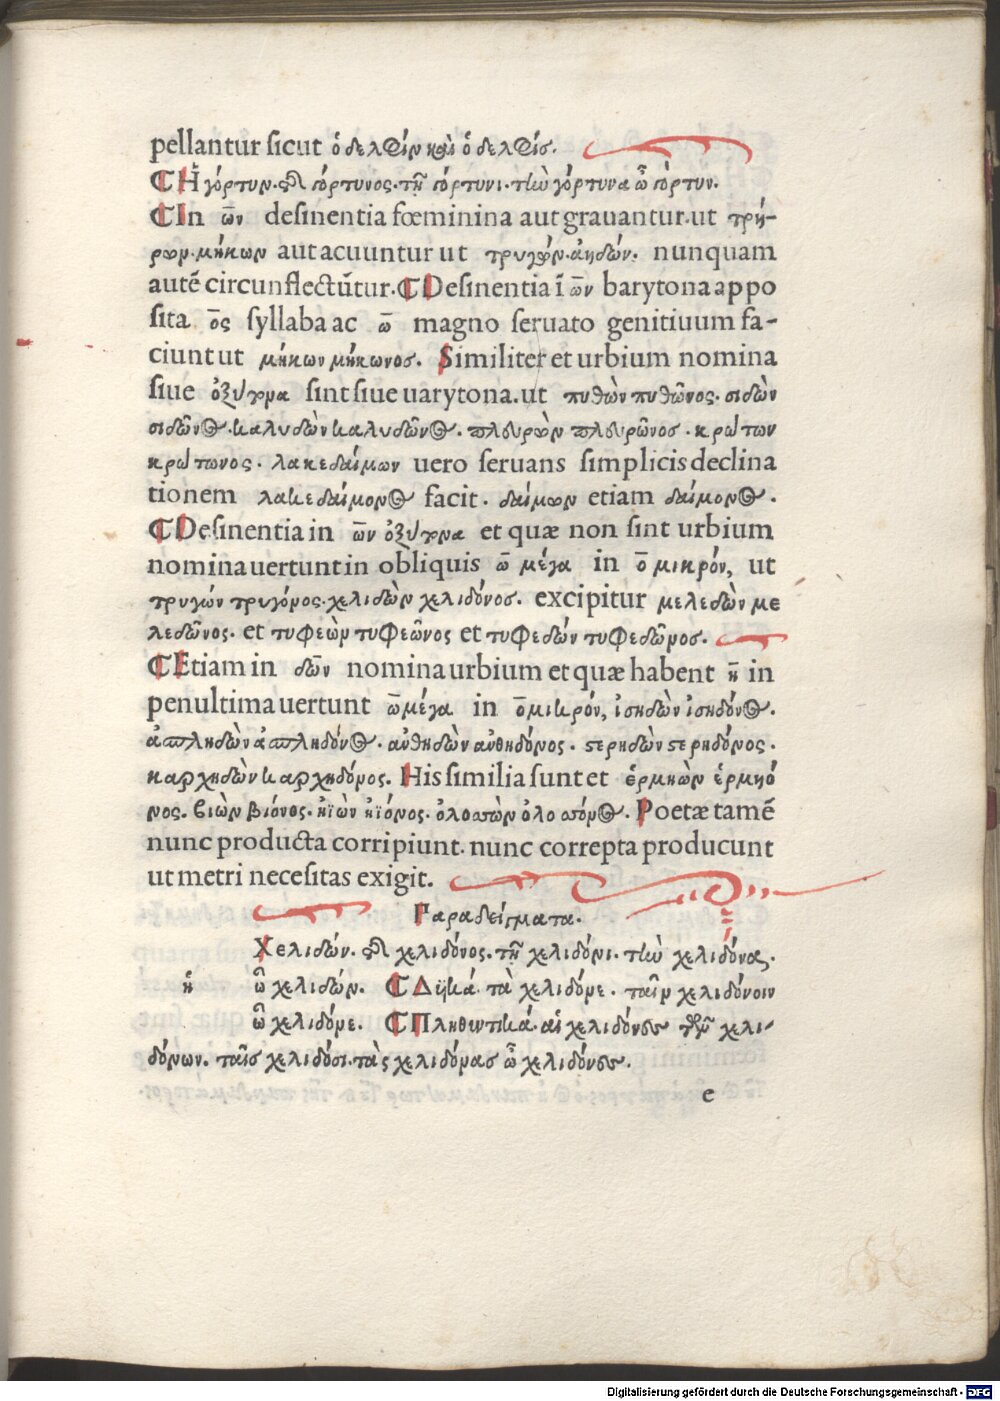 pellantur sicut ὁ δελφίν καὶ ὁ δελφίσ.
¶Ἡ γόρτυν. τῆσ γόρτυνος. τῇ γόρτυνι. τὴν γόρτυνα ὦ γόρτυν.
¶In ων desinentia fœminina aut grauantur. ut τρή-
ρων. μήκων aut acuuntur ut τρυγών. ἀηδών. nunquam
autē circunflectūtur. ¶Desinentia ī ων barytona appo
sita ος syllaba ac ω magno seruato genitiuum fa-
ciunt ut μήκων μήκωνοσ. Similiter et urbium nomina
siue ὀξύτονα sint siue uarytona. ut πυθὼν πυθῶνος. σιδὼν
σιδῶνος. καλυδὼν καλυδῶνος. πλευρὼν πλευρῶνοσ. κρότων
κρότωνος. λακεδαίμων uero seruans simplicis declina
tionem λακεδαίμονος facit. δαίμων etiam δαίμονος.
¶Desinentia in ων ὀξύτονα et quæ non sint urbium
nomina uertunt in obliquis ω μέγα in ο μικρόν, ut
τρυγών τρυγόνος. χελιδὼν χελιδόνοσ. excipitur μελεδὼν με
λεδῶνος. et τυφεὼν τυφεῶνος et τυφεδών τυφεδῶνοσ.
¶Etiam in δων nomina urbium et quæ habent η in
penultima uertunt ω μέγα in ο μικρόν, ἰσηδὼν ἰσηδόνος.
ἀσπληδὼν ἀσπληδόνος. ἀνθηδὼν ἀνθηδόνος. στρηδὼν στρηδόνος.
καρχηδὼν καρχηδόνος. His similia sunt et ἑρμηὼν ἑρμηό
νος. βιὼν βιόνος. ἠϊὼν ἠϊόνος. ὀλοσπὼν ὀλοσπόνος. Poetæ tamē
nunc producta corripiunt. nunc correpta producunt
ut metri necesitas exigit.
Παραδείγματα.
Χελιδών. τῆσ χελιδόνος. τῇ χελιδόνι. τὴν χελιδόνα.
ἡ ὦ χελιδών. ¶Δϋϊκά. τὰ χελιδόνε. ταῖν χελιδόνοιν
ὦ χελιδόνε. ¶Πληθυντικά. αἱ χελιδόνες τῶν χελι-
δόνων. ταῖσ χελιδόσι. τὰς χελιδόνασ ὦ χελιδόνες.
e
Digitalisierung gefördert durch die Deutsche Forschungsgemeinschaft - DFG